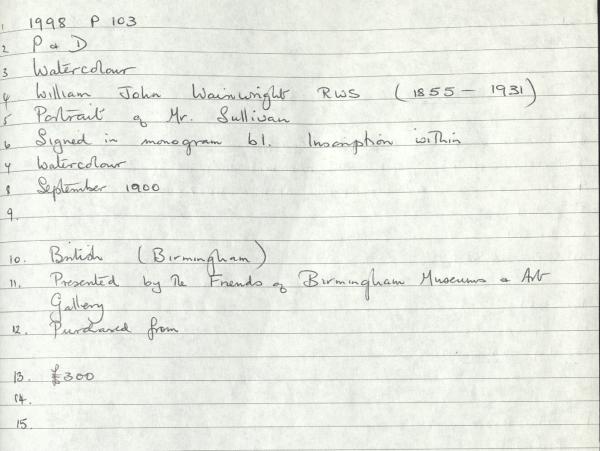 1 1998 P 103
2 P & D
3 Watercolour
4 William John Wainwright RWS (1855 - 1931)
5 Portrait of Mr. Sullivan
6 Signed in monogram bl. Inscription within
7 Watercolour
8 September 1900
9.
10. British (Birmingham)
11. Presented by the Friends of Birmingham Museums & Art
Gallery
12. Purchased from
13. £300
14.
15.